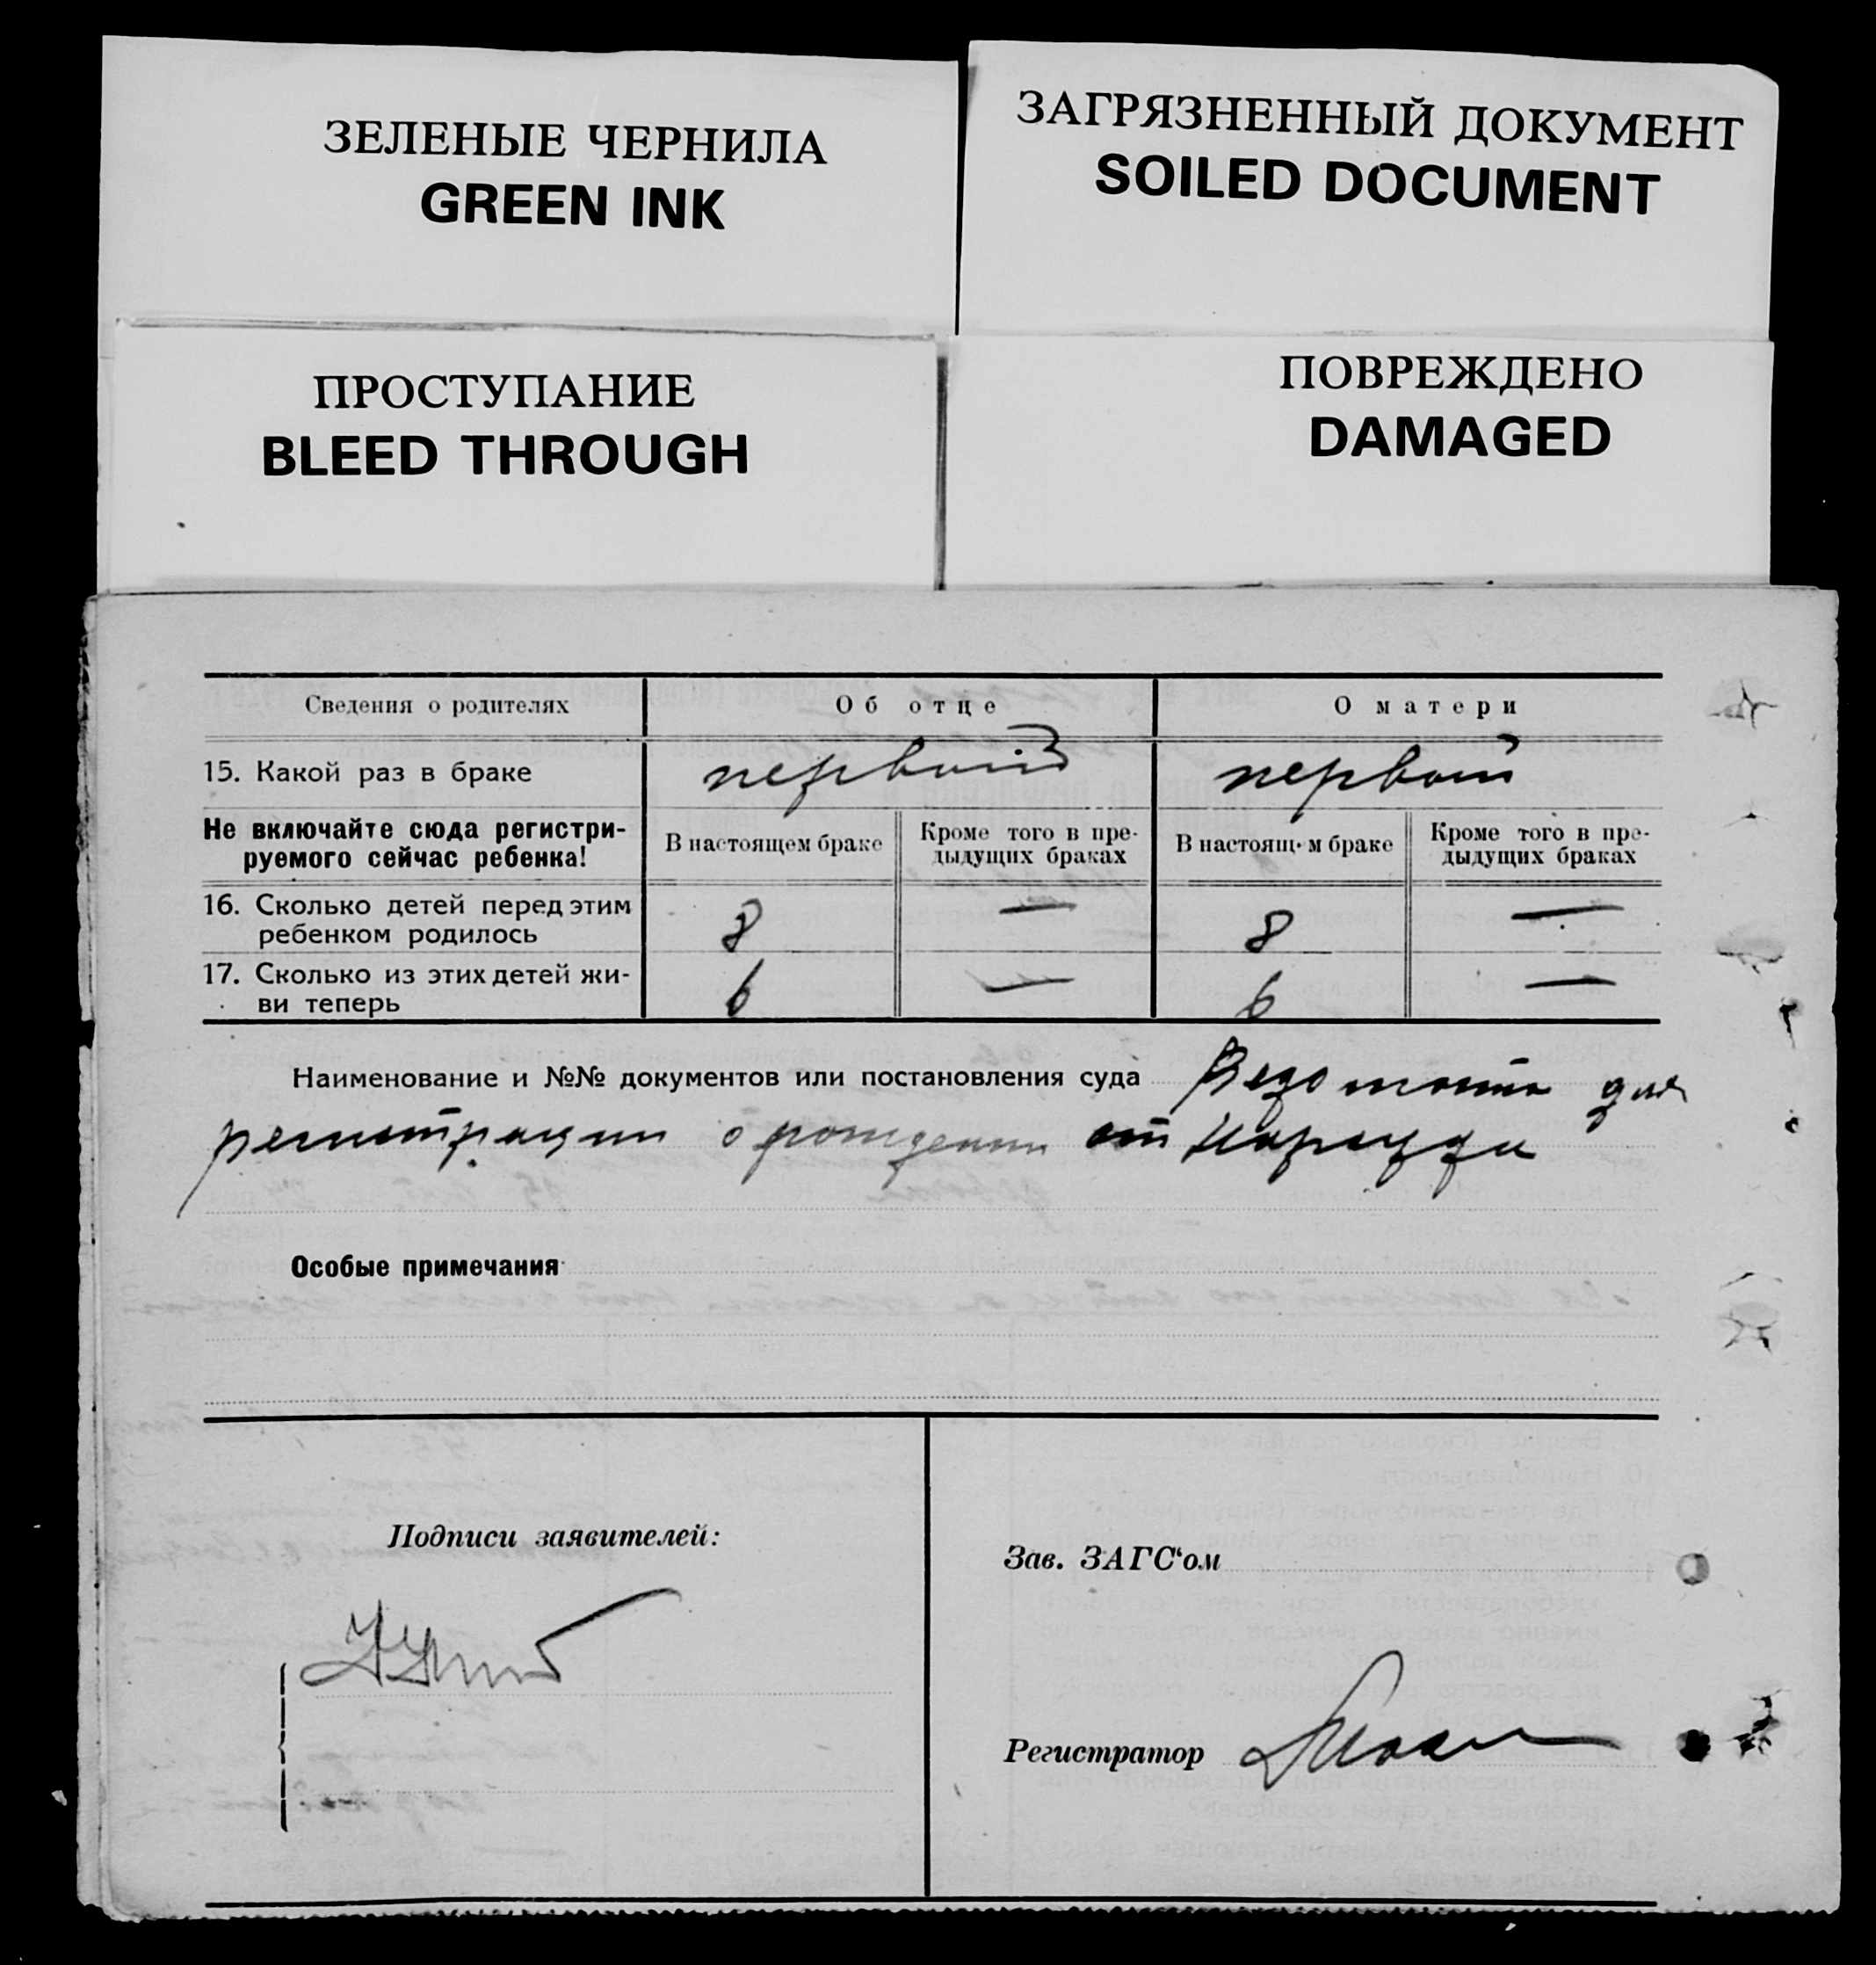 ЗЕЛЕНЫЕ ЧЕРНИЛА
GREEN INK
ЗАГРЯЗНЕННЫЙ ДОКУМЕНТ
SOILED DOCUMENT
ПРОСТУПАНИЕ
BLEED THROUGH
ПОВРЕЖДЕНО
DAMAGED
Сведения о родителях Об отце О матери
15. Какой раз в браке первый первый
Не включайте сюда регистри-
руемого сейчас ребенка!
В настоящем браке
Кроме того в пре-
дыдущих браках
В настоящ м браке
Кроме того в пре-
дыдущих браках
16. Сколько детей перед этим
ребенком родилось 8 — 8 —
17. Сколько из этих детей жи-
ви теперь 6 — 6 —
Наименование и №№ документов или постановления суда для
регистрации о рождении от
Особые примечания
Подписи заявителей:
Зав. ЗАГС'ом
Регистратор